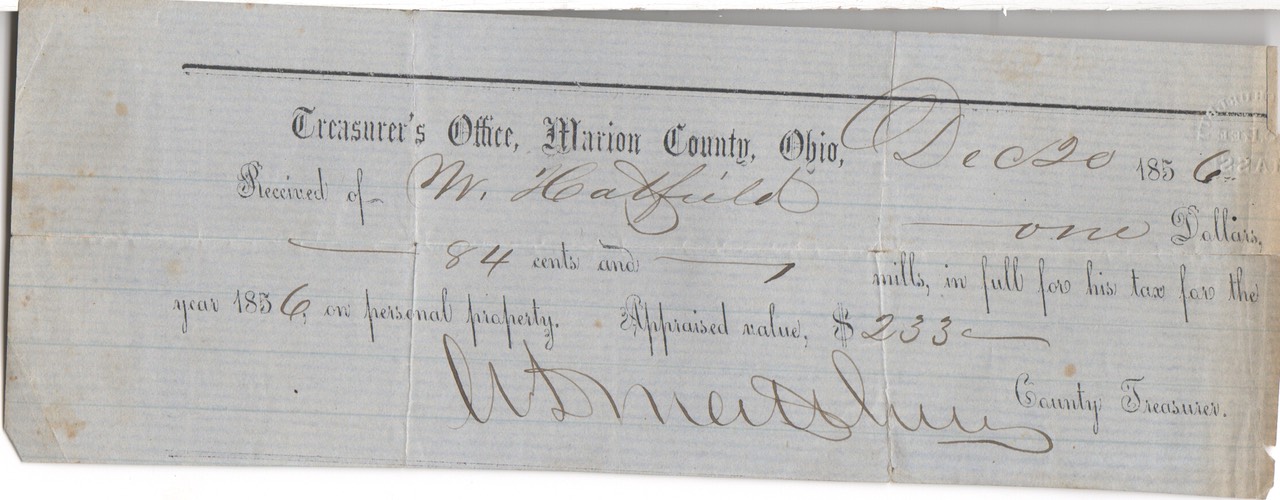 Treasurer's Office, Marion County, Ohio, Dec 20 1856
Received of W. Hatfield
one Dollars,
84 cents and mills, in full for his tax for the
year 1856, on personal property. Appraised value, $233
County Treasurer.